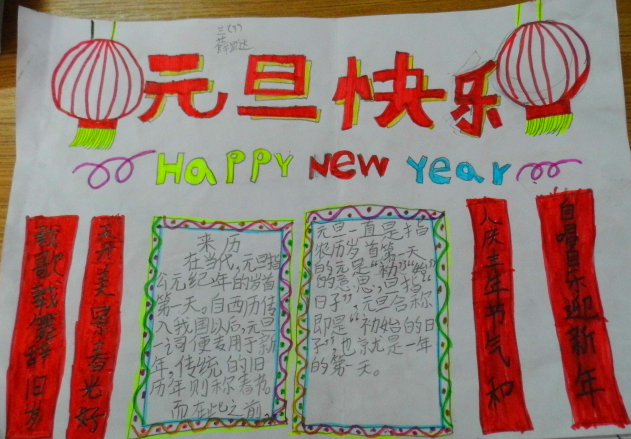 元旦快乐
HAPPY NEW YeaR
来历
在当代,元旦指
公元纪年的岁首
第一天。自西历传
入我国以后,元旦
一词便专用于新
年,传统的旧
历年则称春节。
而在此之前,
元旦一直是指
农历岁首第一天
的元是“初”“始”
的意思,旦指“
日子”,元旦合称
即是“初始的日
子”,也就是一年
的第一天。
歌载舞辞旧岁
美景春光好
人庆丰年节气和
自唱自乐迎新年